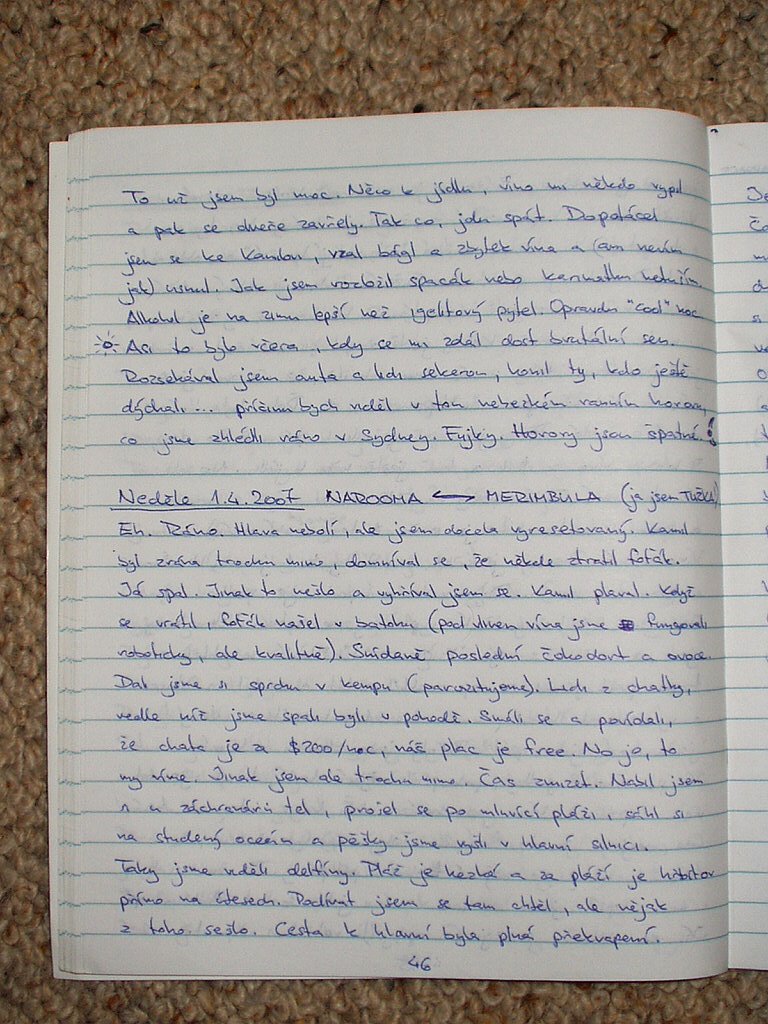 To už jsem byl moc. Něco k jídlu, víno mi někdo vypil
a pak se dveře zavřely. Tak co, jdu spát. Dopotácel
jsem se ke Kamilovi, vzal bágl a zbytek vína a (ani nevím
jak) usnul. Jak jsem rozložil spacák nebo karimatku netuším.
Alkohol je na zimu lepší než igelitový pytel. Opravdu "cool" noc.
Asi to bylo včera, kdy se mi zdál dost brutální sen.
Rozsekával jsem auta a lidi sekerou, honil ty, kdo ještě
dýchali... příčinu bych viděl v tom nehezkém ranním hororu,
co jsme zhlédli ráno v Sydney. Fujky. Horory jsou špatné!
Neděle 1.4.2007 NAROOMA ↔ MERIMBULA (ja jsem TUŽKA)
Eh. Ráno. Hlava nebolí, ale jsem docela vyresetovaný. Kamil
byl zrána trochu mimo, domníval se, že někde ztratil foťák.
Já spal. Jinak to nešlo a vyhříval jsem se. Kamil plaval. Když
se vrátil, foťák našel v batohu (pod vlivem vína jsme fungovali
roboticky, ale kvalitně). Snídaně poslední čokodort a ovoce.
Dali jsme si sprchu v kempu (parazitujeme). Lidi z chatky,
vedle níž jsme spali byli v pohodě. Smáli se a povídali,
že chata je za $200/noc, náš plac je free. No jo, to
my víme. Jinak jsem ale trochu mimo. Čas zmizet. Nabil jsem
si u záchranářů tel, projel se po mluvící pláži, sáhl si
na studený oceán a pěšky jsme vyšli k hlavní silnici.
Taky jsme viděli delfíny. Pláž je hezká a za pláží je hřbitov
přímo na útesech. Podívat jsem se tam chtěl, ale nějak
z toho sešlo. Cesta k hlavní byla plná překvapení.
46